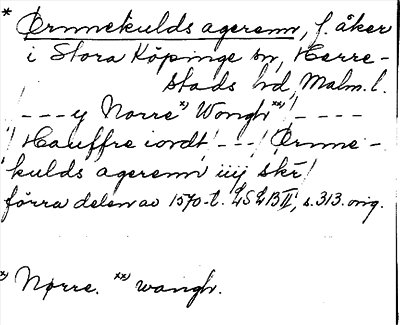 * Ørnnekulds agerenn, f. åker
i Stora Köpinge sn, Herre-
stads hd, Malm. l.
! - - - y Norre *) Wongh **) ! - - - -
! Hauffre iordt! - - -! Ørnne -
kulds agerenn iiij skr!
förra delen av 1570-t. LSLB II, s. 313. orig.
*) Nørre. **) wangh.